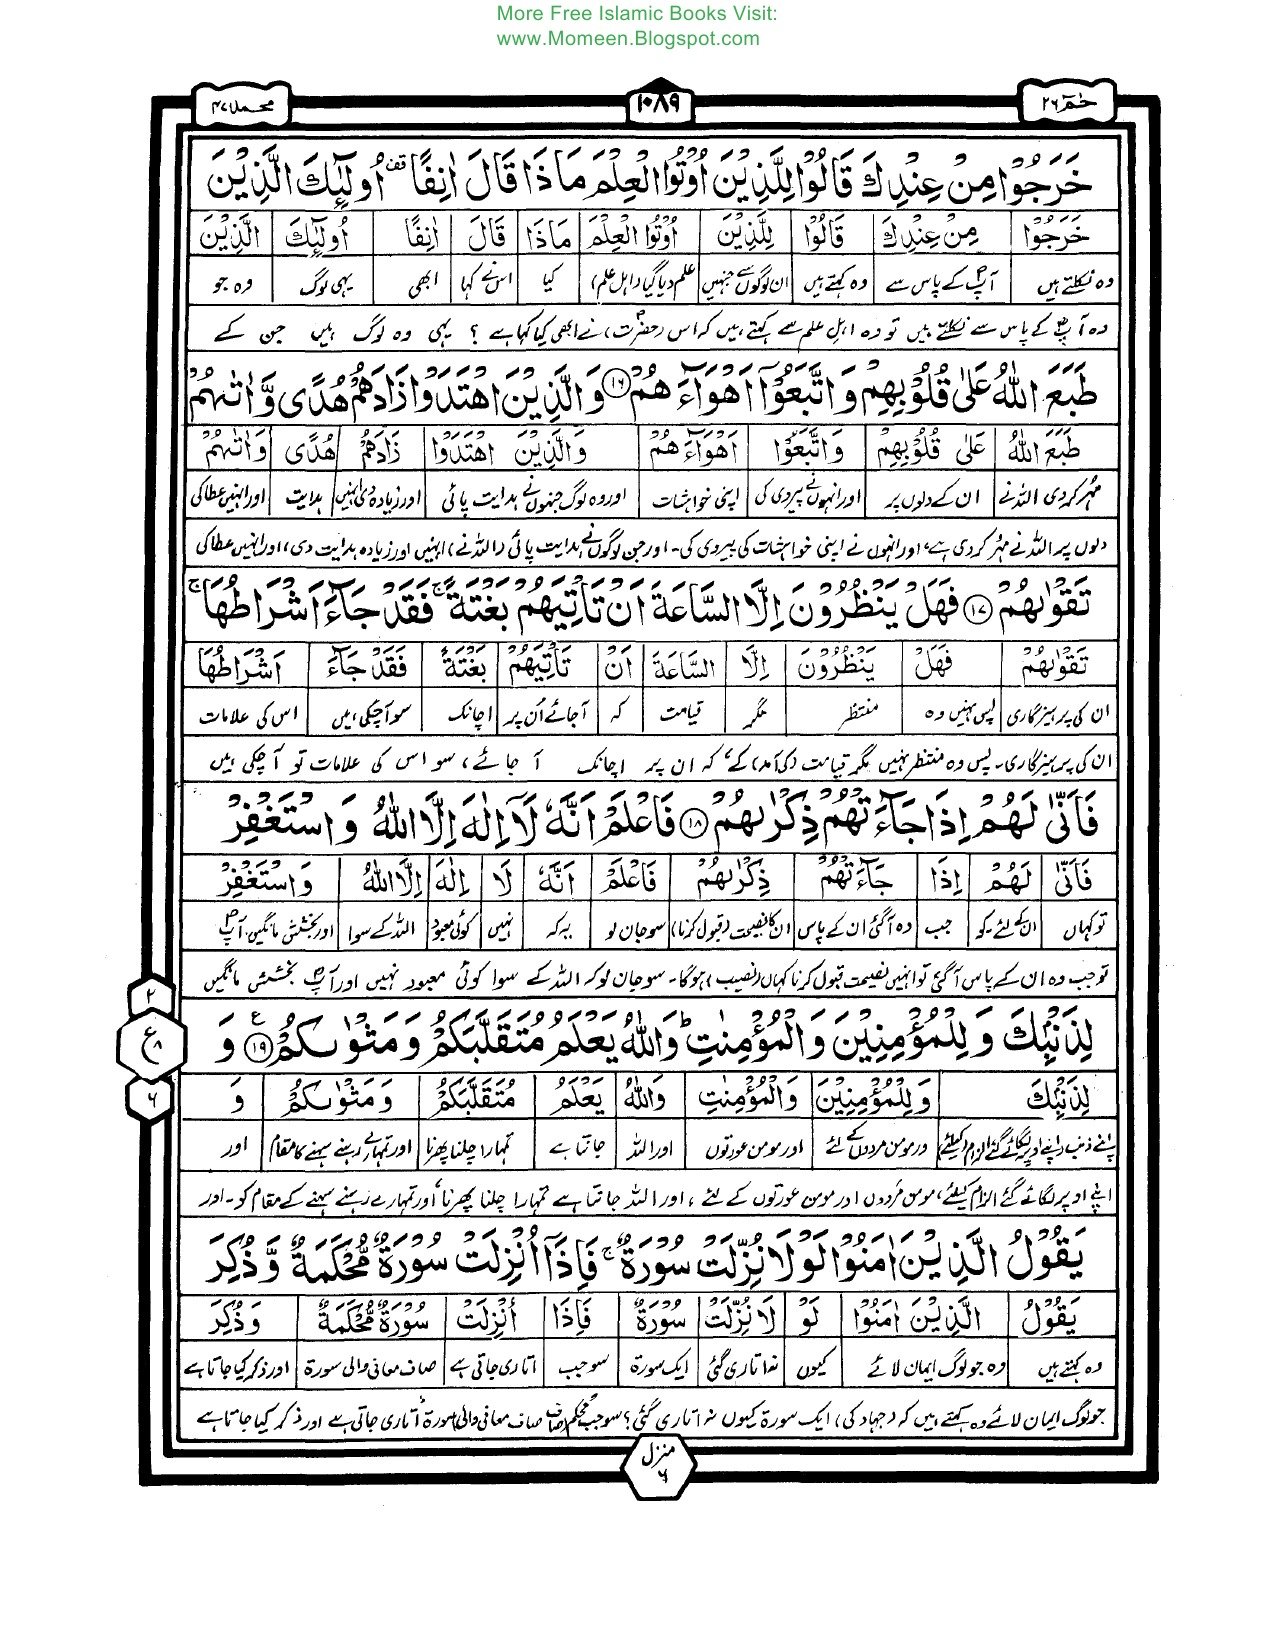 More Free Islamic Books Visit:
www.Momeen.Blogspot.com
حٰمٓ ٢٦
١٠٨٩
محمد ٤٧
خَرَجُوْا مِنْ عِنْدِكَ قَالُوْا لِلَّذِيْنَ اُوْتُوا الْعِلْمَ مَاذَا قَالَ اٰنِفًا ۫ اُولٰٓئِكَ الَّذِيْنَ
خَرَجُوْا مِنْ عِنْدِكَ قَالُوْا لِلَّذِيْنَ اُوْتُوا الْعِلْمَ مَاذَا قَالَ اٰنِفًا اُولٰٓئِكَ الَّذِيْنَ
وہ نکلتے ہیں آپؐ کے پاس سے وہ کہتے ہیں ان لوگوں سے جنہیں علم دیا گیا (اہل علم) کیا اس نے کہا ابھی یہی لوگ وہ جو
وہ آپؐ کے پاس سے نکلتے ہیں تو وہ اہلِ علم سے کہتے ہیں کہ اس (حضرتؐ) نے ابھی کیا کہا ہے ؟ یہی وہ لوگ ہیں جن کے
طَبَعَ اللّٰهُ عَلٰى قُلُوْبِهِمْ وَاتَّبَعُوْٓا اَهْوَآءَهُمْ ﴿١٦﴾ وَالَّذِيْنَ اهْتَدَوْا زَادَهُمْ هُدًى وَّاٰتٰىهُمْ
طَبَعَ اللّٰهُ عَلٰى قُلُوْبِهِمْ وَاتَّبَعُوْٓا اَهْوَآءَهُمْ وَالَّذِيْنَ اهْتَدَوْا زَادَهُمْ هُدًى وَّاٰتٰىهُمْ
مہر کر دی اللہ نے ان کے دلوں پر اور انہوں نے پیروی کی اپنی خواہشات اور وہ لوگ جنہوں نے ہدایت پائی اور زیادہ دی انہیں ہدایت اور انہیں عطا کی
دلوں پر اللہ نے مہر کر دی ہے، اور انہوں نے اپنی خواہشات کی پیروی کی۔ اور جن لوگوں نے ہدایت پائی (اللہ نے) انہیں اور زیادہ ہدایت دی، اور انہیں عطا کی
تَقْوٰىهُمْ ﴿١٧﴾ فَهَلْ يَنْظُرُوْنَ اِلَّا السَّاعَةَ اَنْ تَاْتِيَهُمْ بَغْتَةً ۚ فَقَدْ جَآءَ اَشْرَاطُهَا ۚ
تَقْوٰىهُمْ فَهَلْ يَنْظُرُوْنَ اِلَّا السَّاعَةَ اَنْ تَاْتِيَهُمْ بَغْتَةً فَقَدْ جَآءَ اَشْرَاطُهَا
ان کی پرہیزگاری پس نہیں وہ منتظر مگر قیامت کہ آجائے اُن پر اچانک سو آچکی ہیں اس کی علامات
ان کی پرہیزگاری۔ پس وہ منتظر نہیں مگر قیامت (کی آمد) کے کہ ان پر اچانک آ جائے، سو اس کی علامات تو آ چکی ہیں
فَاَنّٰى لَهُمْ اِذَا جَآءَتْهُمْ ذِكْرٰىهُمْ ﴿١٨﴾ فَاعْلَمْ اَنَّهٗ لَآ اِلٰهَ اِلَّا اللّٰهُ وَاسْتَغْفِرْ
فَاَنّٰى لَهُمْ اِذَا جَآءَتْهُمْ ذِكْرٰىهُمْ فَاعْلَمْ اَنَّهٗ لَا اِلٰهَ اِلَّا اللّٰهُ وَاسْتَغْفِرْ
تو کہاں ان کے لئے کو جب وہ آگئی ان کے پاس ان کا نصیحت (قبول کرنا) سو جان لو یہ کہ نہیں کوئی معبود اللہ کے سوا اور بخشش مانگیں آپؐ
تو جب وہ ان کے پاس آ گئی تو انہیں نصیحت قبول کرنا کہاں (نصیب) ہوگا۔ سو جان لو کہ اللہ کے سوا کوئی معبود نہیں اور آپؐ بخشش مانگیں
٢
ع ٨
٦
لِذَنْۢبِكَ وَلِلْمُؤْمِنِيْنَ وَالْمُؤْمِنٰتِ ؕ وَاللّٰهُ يَعْلَمُ مُتَقَلَّبَكُمْ وَمَثْوٰىكُمْ ﴿١٩﴾ ع وَ
لِذَنْۢبِكَ وَلِلْمُؤْمِنِيْنَ وَالْمُؤْمِنٰتِ وَاللّٰهُ يَعْلَمُ مُتَقَلَّبَكُمْ وَمَثْوٰىكُمْ وَ
اپنے ذنب (اپنے اوپر لگائے گئے الزام) کیلئے اور مومن مردوں کے لئے اور مومن عورتوں اور اللہ جانتا ہے تمہارا چلنا پھرنا اور تمہارے رہنے سہنے کا مقام اور
اپنے اوپر لگائے گئے الزام کیلئے، مومن مَردوں اور مومن عورتوں کے لئے، اور اللہ جانتا ہے تمہارا چلنا پھرنا اور تمہارے رہنے سہنے کے مقام کو۔ اور
يَقُوْلُ الَّذِيْنَ اٰمَنُوْا لَوْلَا نُزِّلَتْ سُوْرَةٌ ۚ فَاِذَآ اُنْزِلَتْ سُوْرَةٌ مُّحْكَمَةٌ وَّذُكِرَ
يَقُوْلُ الَّذِيْنَ اٰمَنُوْا لَوْ لَا نُزِّلَتْ سُوْرَةٌ فَاِذَا اُنْزِلَتْ سُوْرَةٌ مُّحْكَمَةٌ وَّذُكِرَ
وہ کہتے ہیں وہ جو لوگ ایمان لائے کیوں نہ اتاری گئی ایک سورۃ سو جب اتاری جاتی ہے صاف معانی والی سورۃ اور ذکر کیا جاتا ہے
جو لوگ ایمان لائے وہ کہتے ہیں کہ (جہاد کی) ایک سورۃ کیوں نہ اتاری گئی؟ سو جب محکم (صاف صاف معانی والی) سورۃ اتاری جاتی ہے اور ذکر کیا جاتا ہے
منزل ٦